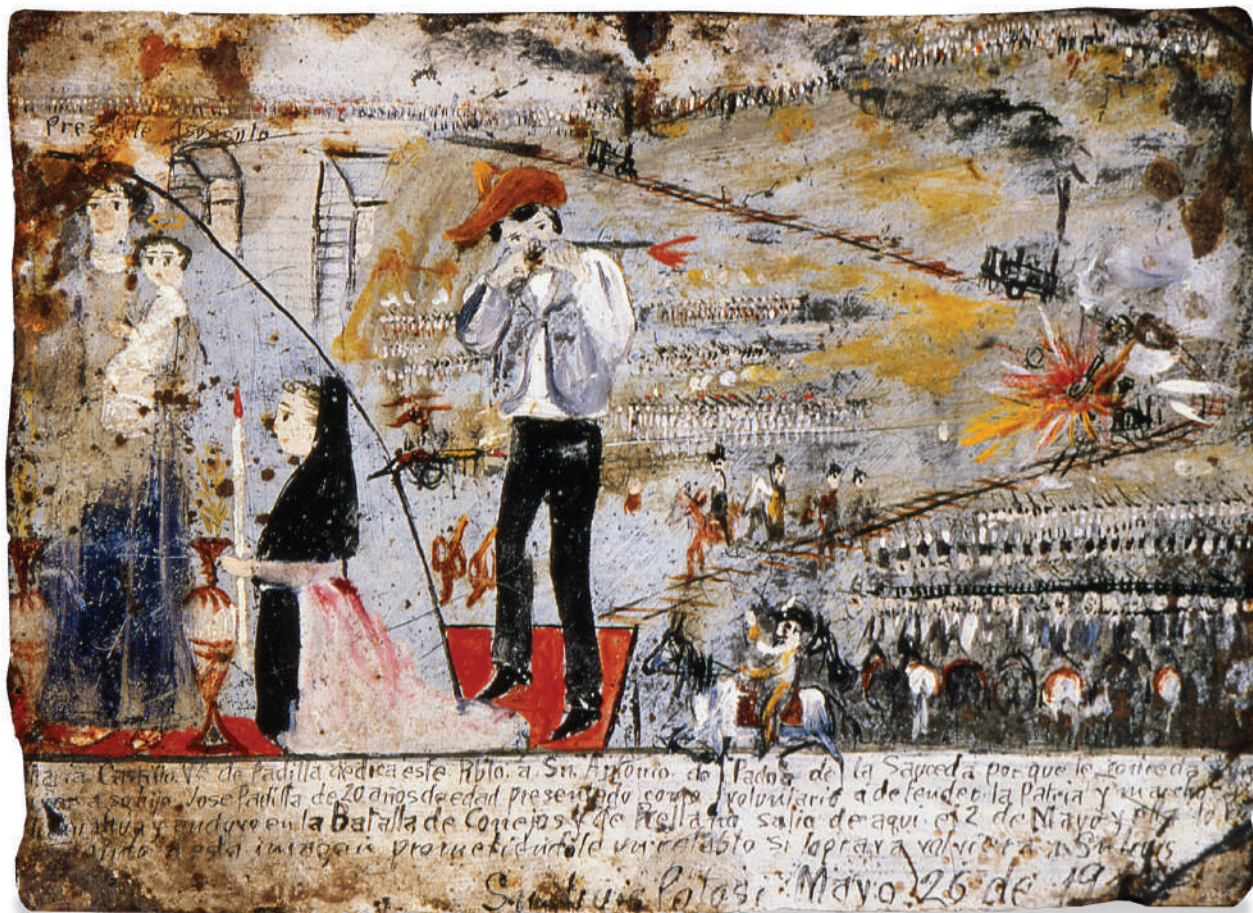 Maria Castillo Vª de Padilla dedica este Rtblo. a Sn. Antonio de Padua de la Sauceda por que le conceda
a su hijo Jose Padilla de 20 años de edad presentado como voluntario a defender la Patria y marcho
y anduvo en la Batalla de Conejos y de Rellano salio de aqui el 2 de Mayo y ella
a esta imagen prometiendole un retablo si lograra volviera a Sn Luis
Sn Luis Potosi Mayo 26 de 19